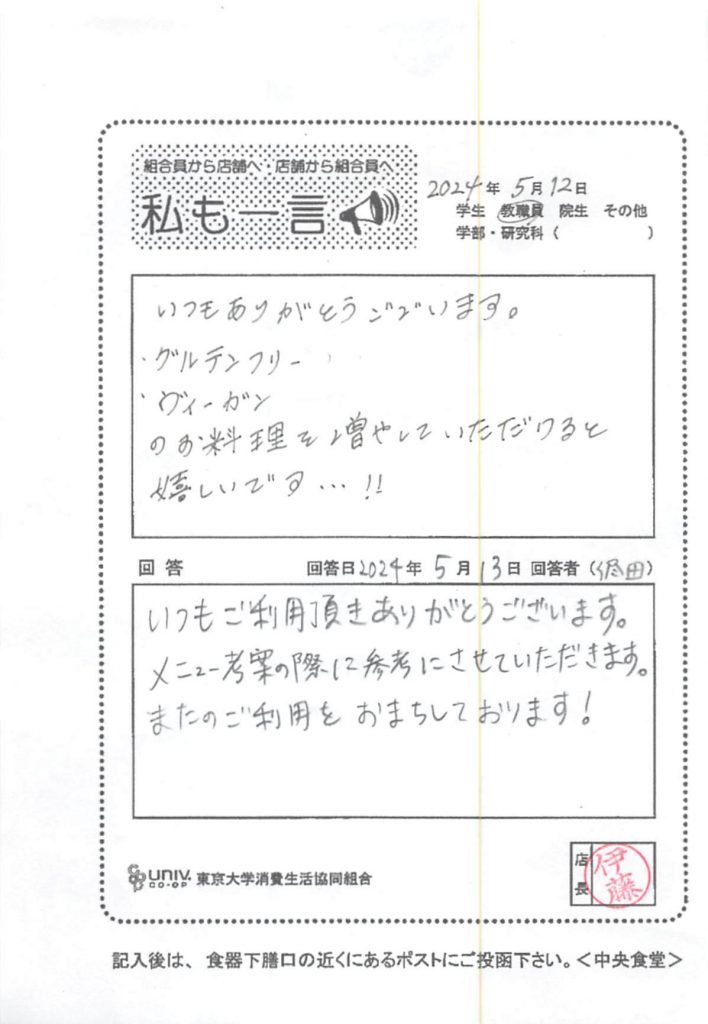 組合員から店舗へ・店舗から組合員へ
私も一言
2024年 5月12日
学生 教職員 院生 その他
学部・研究科( )
いつもありがとうございます。
・グルテンフリー
・ヴィーガン
のお料理を増やしていただけると
嬉しいです…!!
回答 回答日2024年 5月13日 回答者(田)
いつもご利用頂きありがとうございます。
メニュー考案の際に参考にさせていただきます。
またのご利用を おまちしております!
店長 伊藤
UNIV. CO-OP 東京大学消費生活協同組合
記入後は、食器下膳口の近くにあるポストにご投函下さい。<中央食堂>